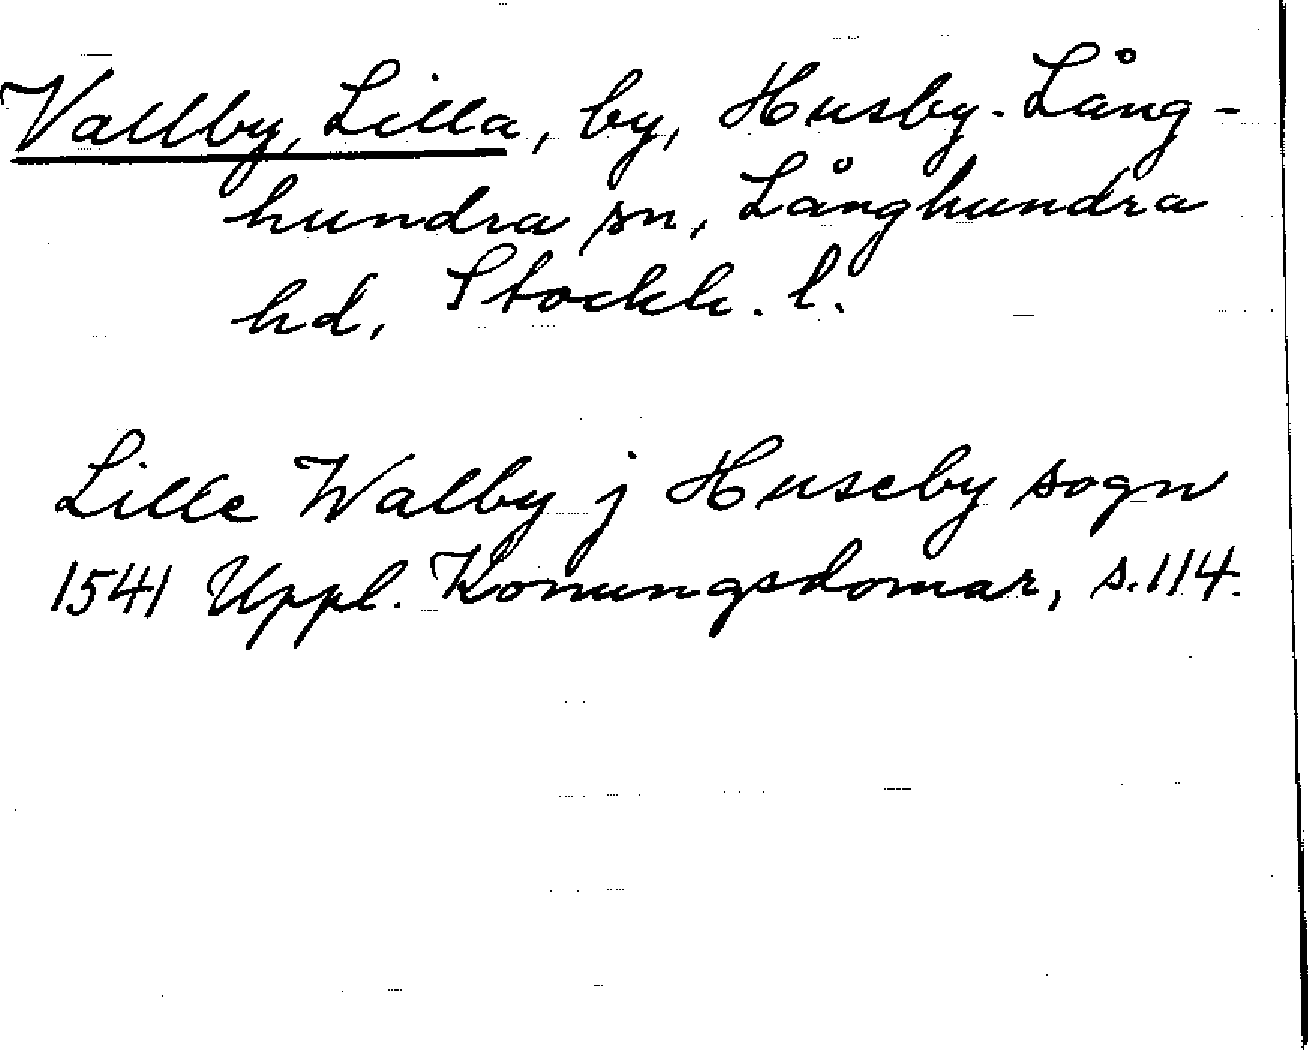 Vallby, Lilla, by, Husby-Lång-
hundra sn, Långhundra
hd, Stockh. l.
Lille Walby j Huseby sogn
1541 Uppl. Konungsdomar, s. 114.